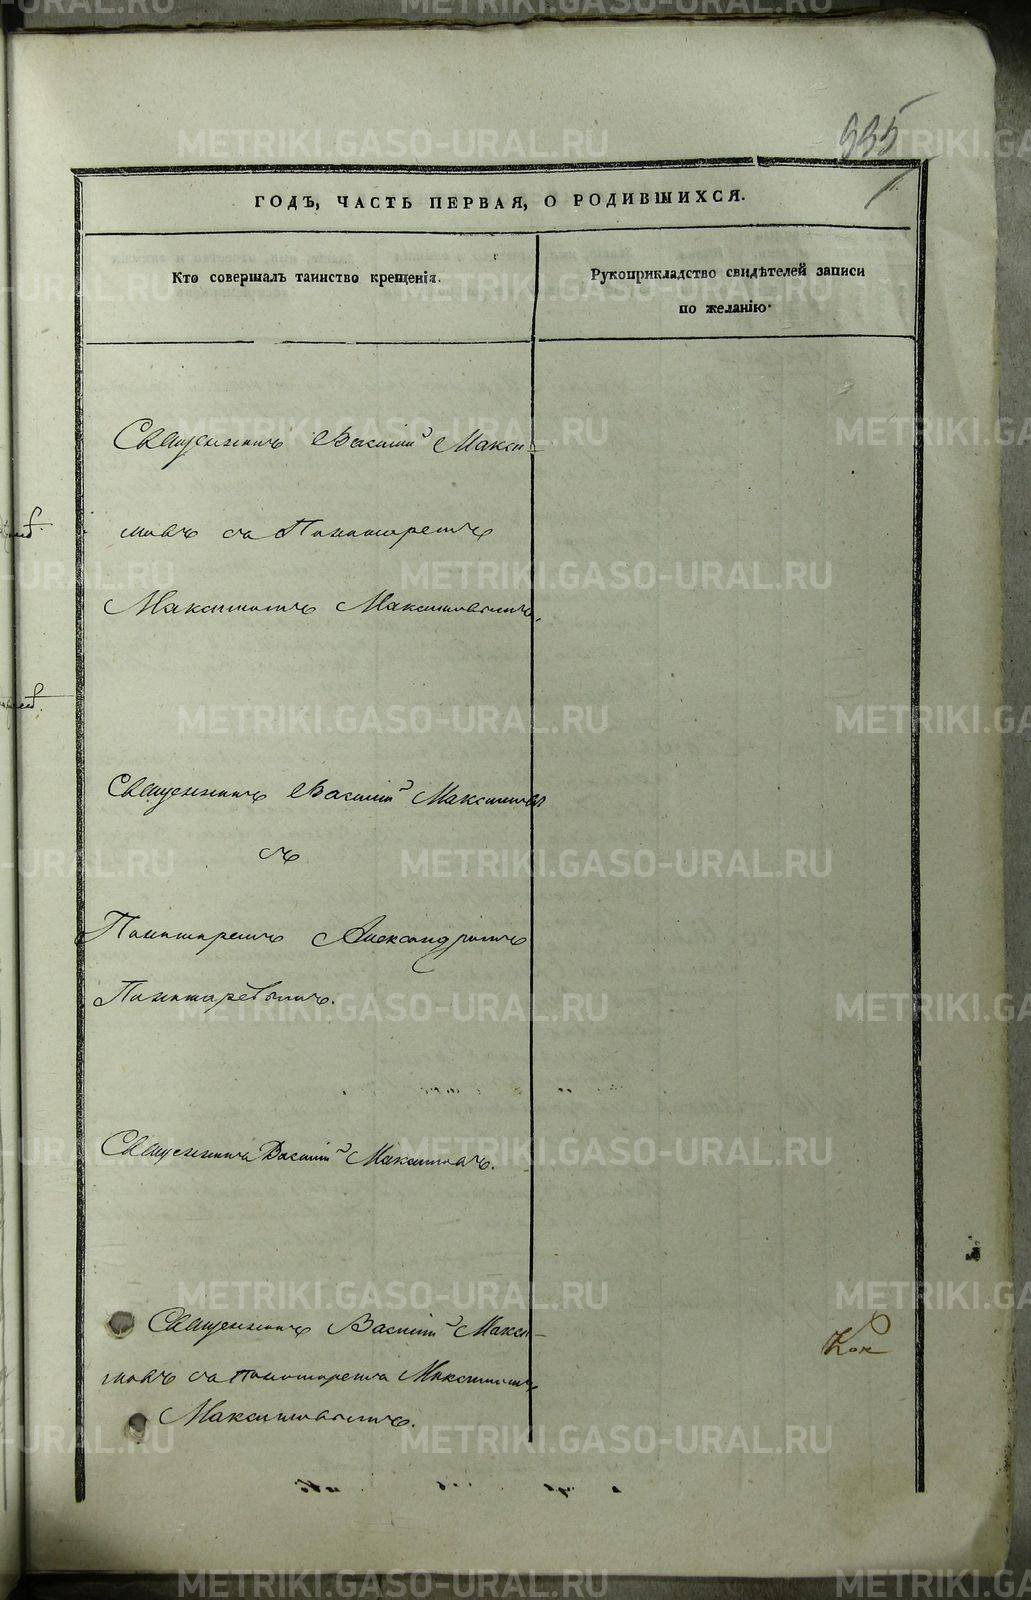 335
ГОДЪ, ЧАСТЬ ПЕРВАЯ, О РОДИВШИХСЯ.
Кто совершалъ таинство крещенія.
Рукоприкладство свидѣтелей записи
по желанію.
Священникъ Василій Макси-
мовъ съ Пономаремъ
Максимомъ Максимовымъ.
Священникъ Василій Максимовъ
съ
Пономаремъ Александромъ
Пономаревымъ.
Священникъ Василій Максимовъ.
Священникъ Василій Макси-
мовъ съ пономаремъ Максимомъ
Максимовымъ.
METRIKI.GASO-URAL.RU